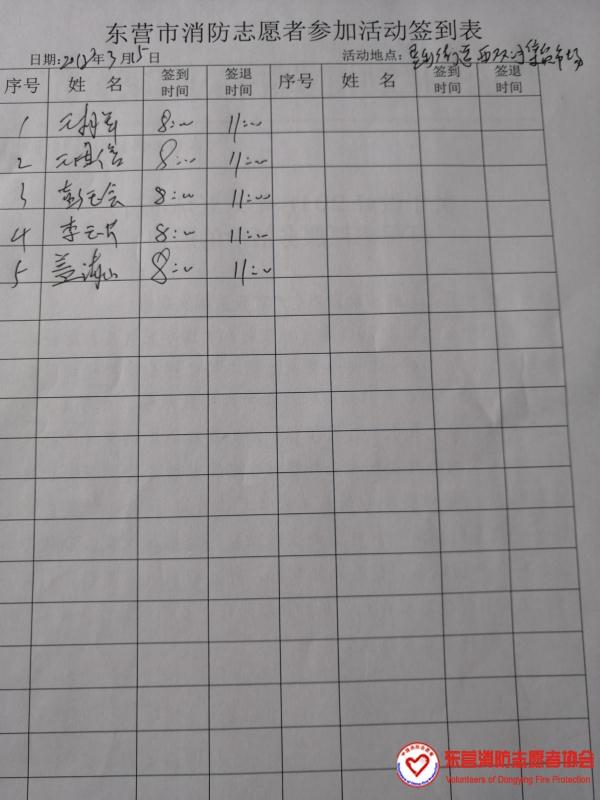 东营市消防志愿者参加活动签到表
日期:2023年3月15日 活动地点:
序号 姓 名 签到时间 签退时间 序号 姓 名 签到时间 签退时间
1 8:00 11:00
2 8:00 11:00
3 8:00 11:00
4 李 8:00 11:00
5 盖海山 8:00 11:00
东营消防志愿者协会
Volunteers of Dongying Fire Protection